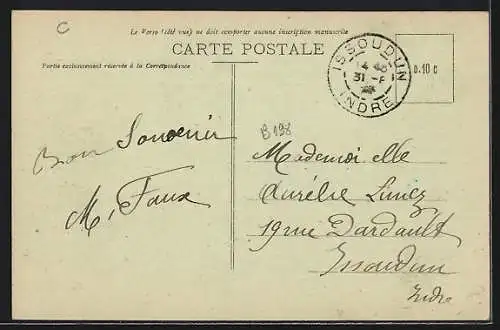 C
Le Verso (côté vue) ne doit comporter aucune inscription manuscrite
CARTE POSTALE
Partie exclusivement réservée à la Correspondance
ISSOUDUN
4 48
31 -
INDRE
0.10 c
B198
Bon Souvenir
M, Faux
Mademoiselle
Aurélie
19 rue Dardault
Issoudun
Indre